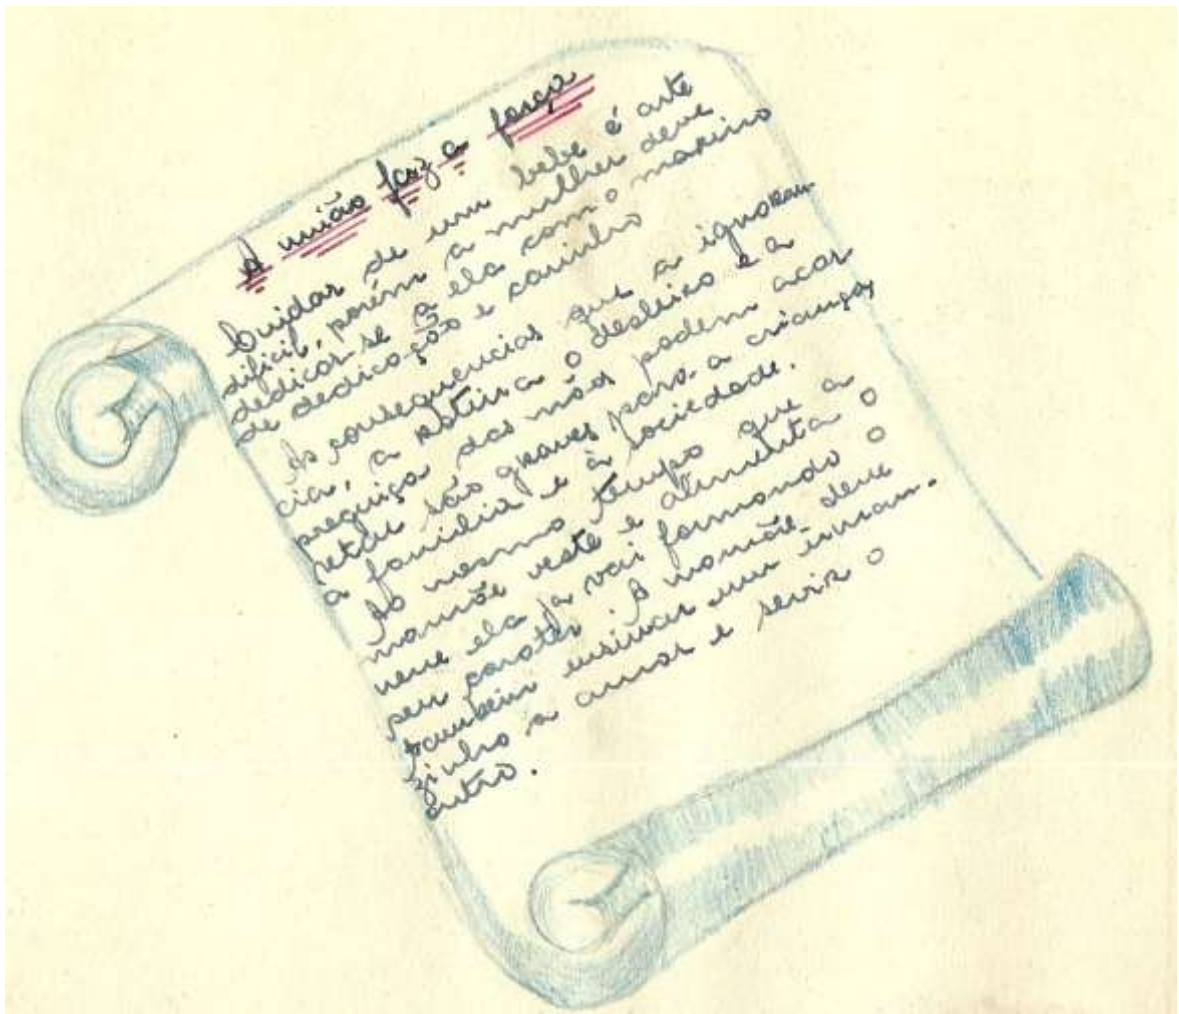 A união faz a força
Cuidar de um bebe é arte
dificil, porém a mulher deve
dedicar-se a ela com o maximo
de dedicação e carinho
As consequencias que a ignoran
cia, a rotina o desleixo e a
preguiça das mães podem acar
retar são graves para a criança,
a familia e à sociedade.
Ao mesmo tempo que a
mamãe veste e alimenta o
nene ela ja vai formando o
seu carater. A mamãe deve
tambem ensinar um irman-
zinho a amar e servir o
outro.